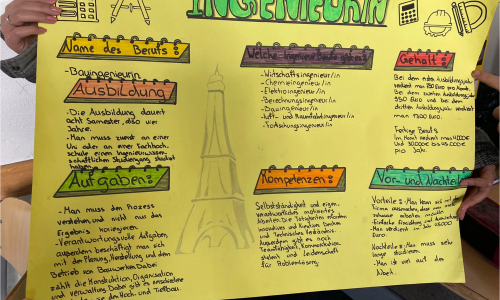 INGENIEURIN
Name des Berufs:
- Bauingenieurin
Ausbildung
- Die Ausbildung dauert
acht Semester, also vier
Jahre.
- Man muss zuerst an einer
Uni oder an einer Fachhoch-
schule einen Ingenieurswissen-
schaftlichen Studiengang studiert
haben
Aufgaben:
- Man muss den Prozess
verstehen, und nicht nur das
Ergebnis
- Verantwortungsvolle Aufgaben,
ausserdem beschäftigt man sich
mit der Planung, Herstellung und dem
Betrieb von Bauwerken. Dabei
zählt die Konstruktion, Organisation
und Verwaltung. Dabei gibt es verschiedene
die Hoch- und Tiefbau.
Welche Ingenieur Berufe gibt es?
- Wirtschaftsingenieur/in
- Chemieingenieur/in
- Elektroingenieur/in
- Berechnungsingenieur/in
- Bauingenieur/in
- Luft- und Raumfahrtingenieur/in
- Forschungsingenieur/in
Kompetenzen:
Selbstständigkeit und eigen-
verantwortliches motiviertes
Arbeiten. Die Tätigkeiten erfordern
innovatives und Kreatives Denken
und Technisches Verständnis.
Ausserdem gibt es noch
Teamfähigkeit, Kommunikation
und Leidenschaft
für Problemlösung.
Gehalt:
Bei dem ersten Ausbildungsjahr
verdient man 750 Euro pro Monat.
Bei dem zweiten Ausbildungsjahr
950 Euro und bei dem
dritten Ausbildungsjahr verdient
man 1'300 Euro.
Fertige Beruf:
Im Monat verdient man
und
pro Jahr.
Vor- und Nachteile
Vorteile: - Man kann sich
Firma aussuchen, dass man
zuhause arbeiten
- Man verdient im Jahr
Nachteile: - Man muss sehr
lange studieren.
- Man ist viel auf den